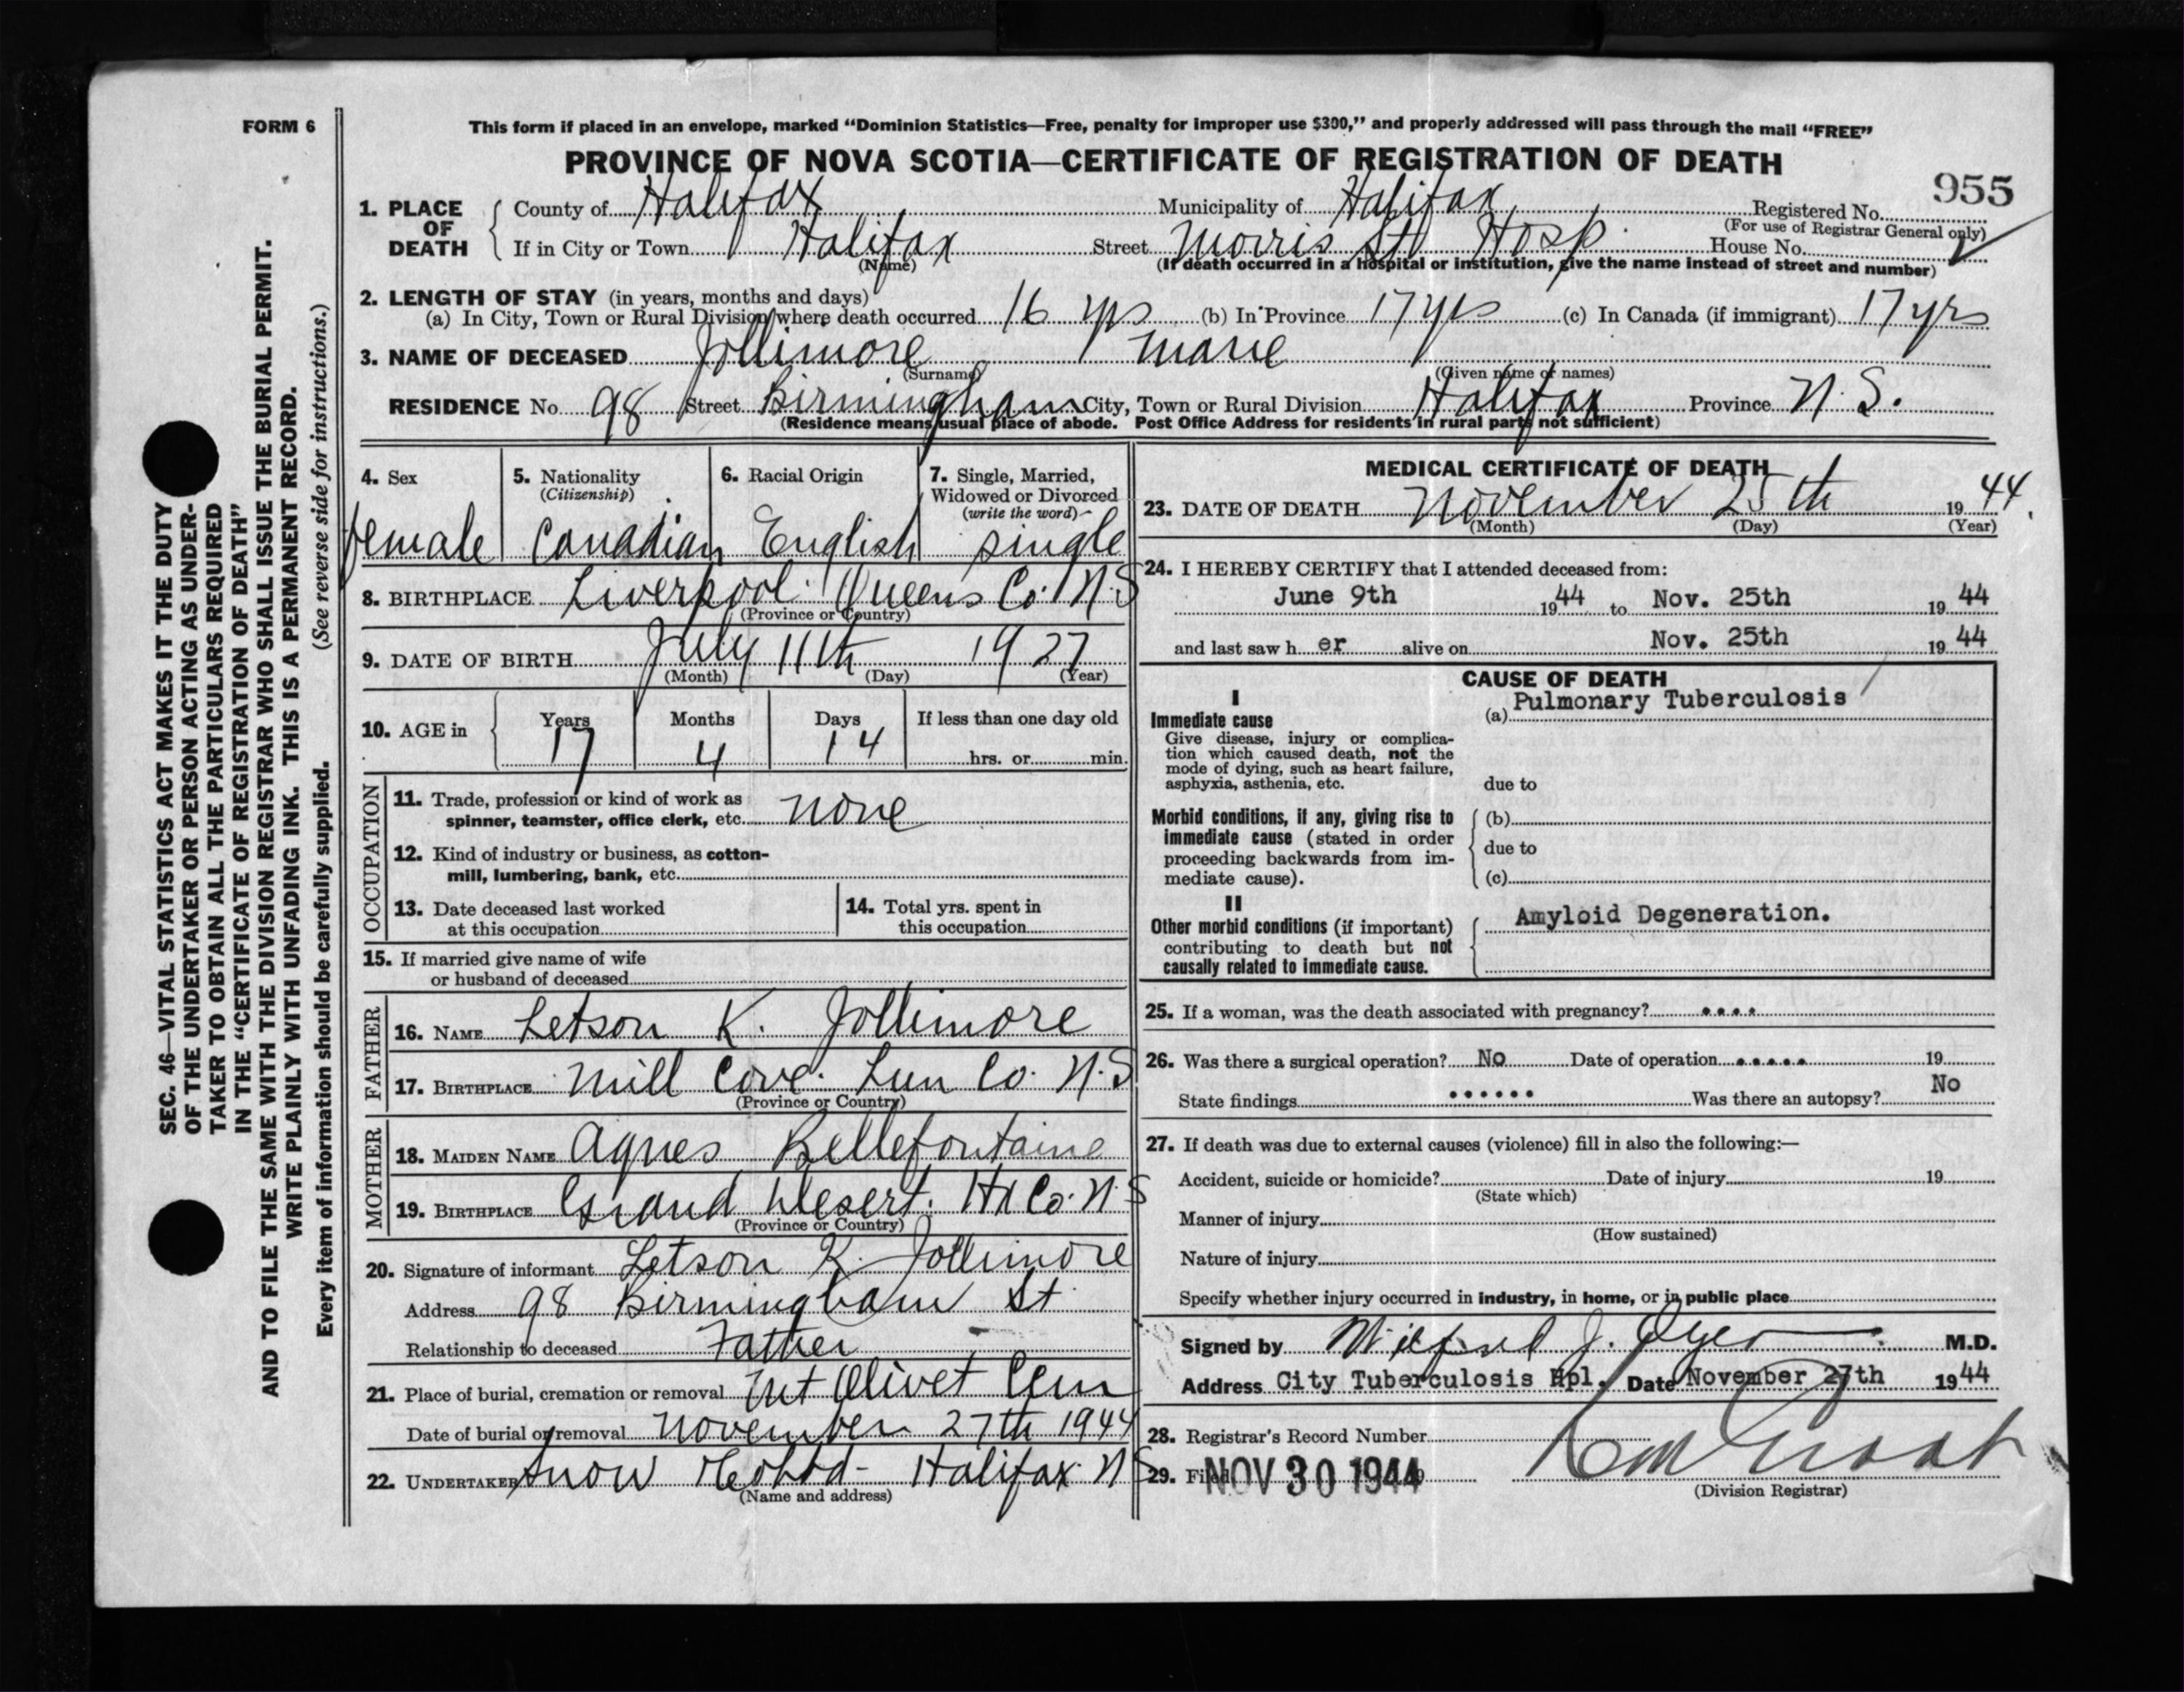 FORM 6
This form if placed in an envelope, marked “Dominion Statistics—Free, penalty for improper use $300,” and properly addressed will pass through the mail “FREE”
PROVINCE OF NOVA SCOTIA—CERTIFICATE OF REGISTRATION OF DEATH
955
1. PLACE OF DEATH County of Halifax Municipality of Halifax Registered No.
(For use of Registrar General only)
If in City or Town Halifax Street Morris St Hosp. House No.
(Name) (If death occurred in a hospital or institution, give the name instead of street and number)
2. LENGTH OF STAY (in years, months and days)
(a) In City, Town or Rural Division where death occurred 16 yrs (b) In Province 17 yrs (c) In Canada (if immigrant) 17 yrs
3. NAME OF DECEASED Jollimore Marie
(Surname) (Given name or names)
RESIDENCE No. 98 Street Birmingham City, Town or Rural Division Halifax Province N.S.
(Residence means usual place of abode. Post Office Address for residents in rural parts not sufficient)
4. Sex
female
5. Nationality
(Citizenship)
Canadian
6. Racial Origin
English
7. Single, Married,
Widowed or Divorced
(write the word)
single
8. BIRTHPLACE Liverpool Queens Co. N.S
(Province or Country)
9. DATE OF BIRTH July 11th 1927
(Month) (Day) (Year)
10. AGE in Years Months Days If less than one day old
17 4 14 hrs. or min.
OCCUPATION
11. Trade, profession or kind of work as
spinner, teamster, office clerk, etc. none
12. Kind of industry or business, as cotton-
mill, lumbering, bank, etc.
13. Date deceased last worked
at this occupation
14. Total yrs. spent in
this occupation
15. If married give name of wife
or husband of deceased
FATHER
16. NAME Letson K. Jollimore
17. BIRTHPLACE Mill Cove. Lun Co. N.S
(Province or Country)
MOTHER
18. MAIDEN NAME Agnes Bellefontaine
19. BIRTHPLACE Grand Desert. Hx Co. N.S
(Province or Country)
20. Signature of informant Letson K. Jollimore
Address 98 Birmingham St
Relationship to deceased Father
21. Place of burial, cremation or removal Mt Olivet Cem
Date of burial or removal November 27th 1944
22. UNDERTAKER Snow & Co Ltd - Halifax N.S
(Name and address)
MEDICAL CERTIFICATE OF DEATH
23. DATE OF DEATH November 25th 1944.
(Month) (Day) (Year)
24. I HEREBY CERTIFY that I attended deceased from:
June 9th 1944 to Nov. 25th 1944
and last saw h er alive on Nov. 25th 1944
CAUSE OF DEATH
I
Immediate cause
Give disease, injury or complica-
tion which caused death, not the
mode of dying, such as heart failure,
asphyxia, asthenia, etc.
(a) Pulmonary Tuberculosis
due to
Morbid conditions, if any, giving rise to
immediate cause (stated in order
proceeding backwards from im-
mediate cause).
(b)
due to
(c)
II
Other morbid conditions (if important)
contributing to death but not
causally related to immediate cause.
Amyloid Degeneration.
25. If a woman, was the death associated with pregnancy? ....
26. Was there a surgical operation? No Date of operation ..... 19
State findings ...... Was there an autopsy? No
27. If death was due to external causes (violence) fill in also the following:—
Accident, suicide or homicide? Date of injury 19
(State which)
Manner of injury
(How sustained)
Nature of injury
Specify whether injury occurred in industry, in home, or in public place
Signed by Wilfred J. Dyer M.D.
Address City Tuberculosis Hpl. Date November 27th 1944
28. Registrar's Record Number
29. Filed NOV 30 1944
(Division Registrar)
SEC. 46—VITAL STATISTICS ACT MAKES IT THE DUTY
OF THE UNDERTAKER OR PERSON ACTING AS UNDER-
TAKER TO OBTAIN ALL THE PARTICULARS REQUIRED
IN THE “CERTIFICATE OF REGISTRATION OF DEATH”
AND TO FILE THE SAME WITH THE DIVISION REGISTRAR WHO SHALL ISSUE THE BURIAL PERMIT.
WRITE PLAINLY WITH UNFADING INK. THIS IS A PERMANENT RECORD.
Every item of information should be carefully supplied. (See reverse side for instructions.)